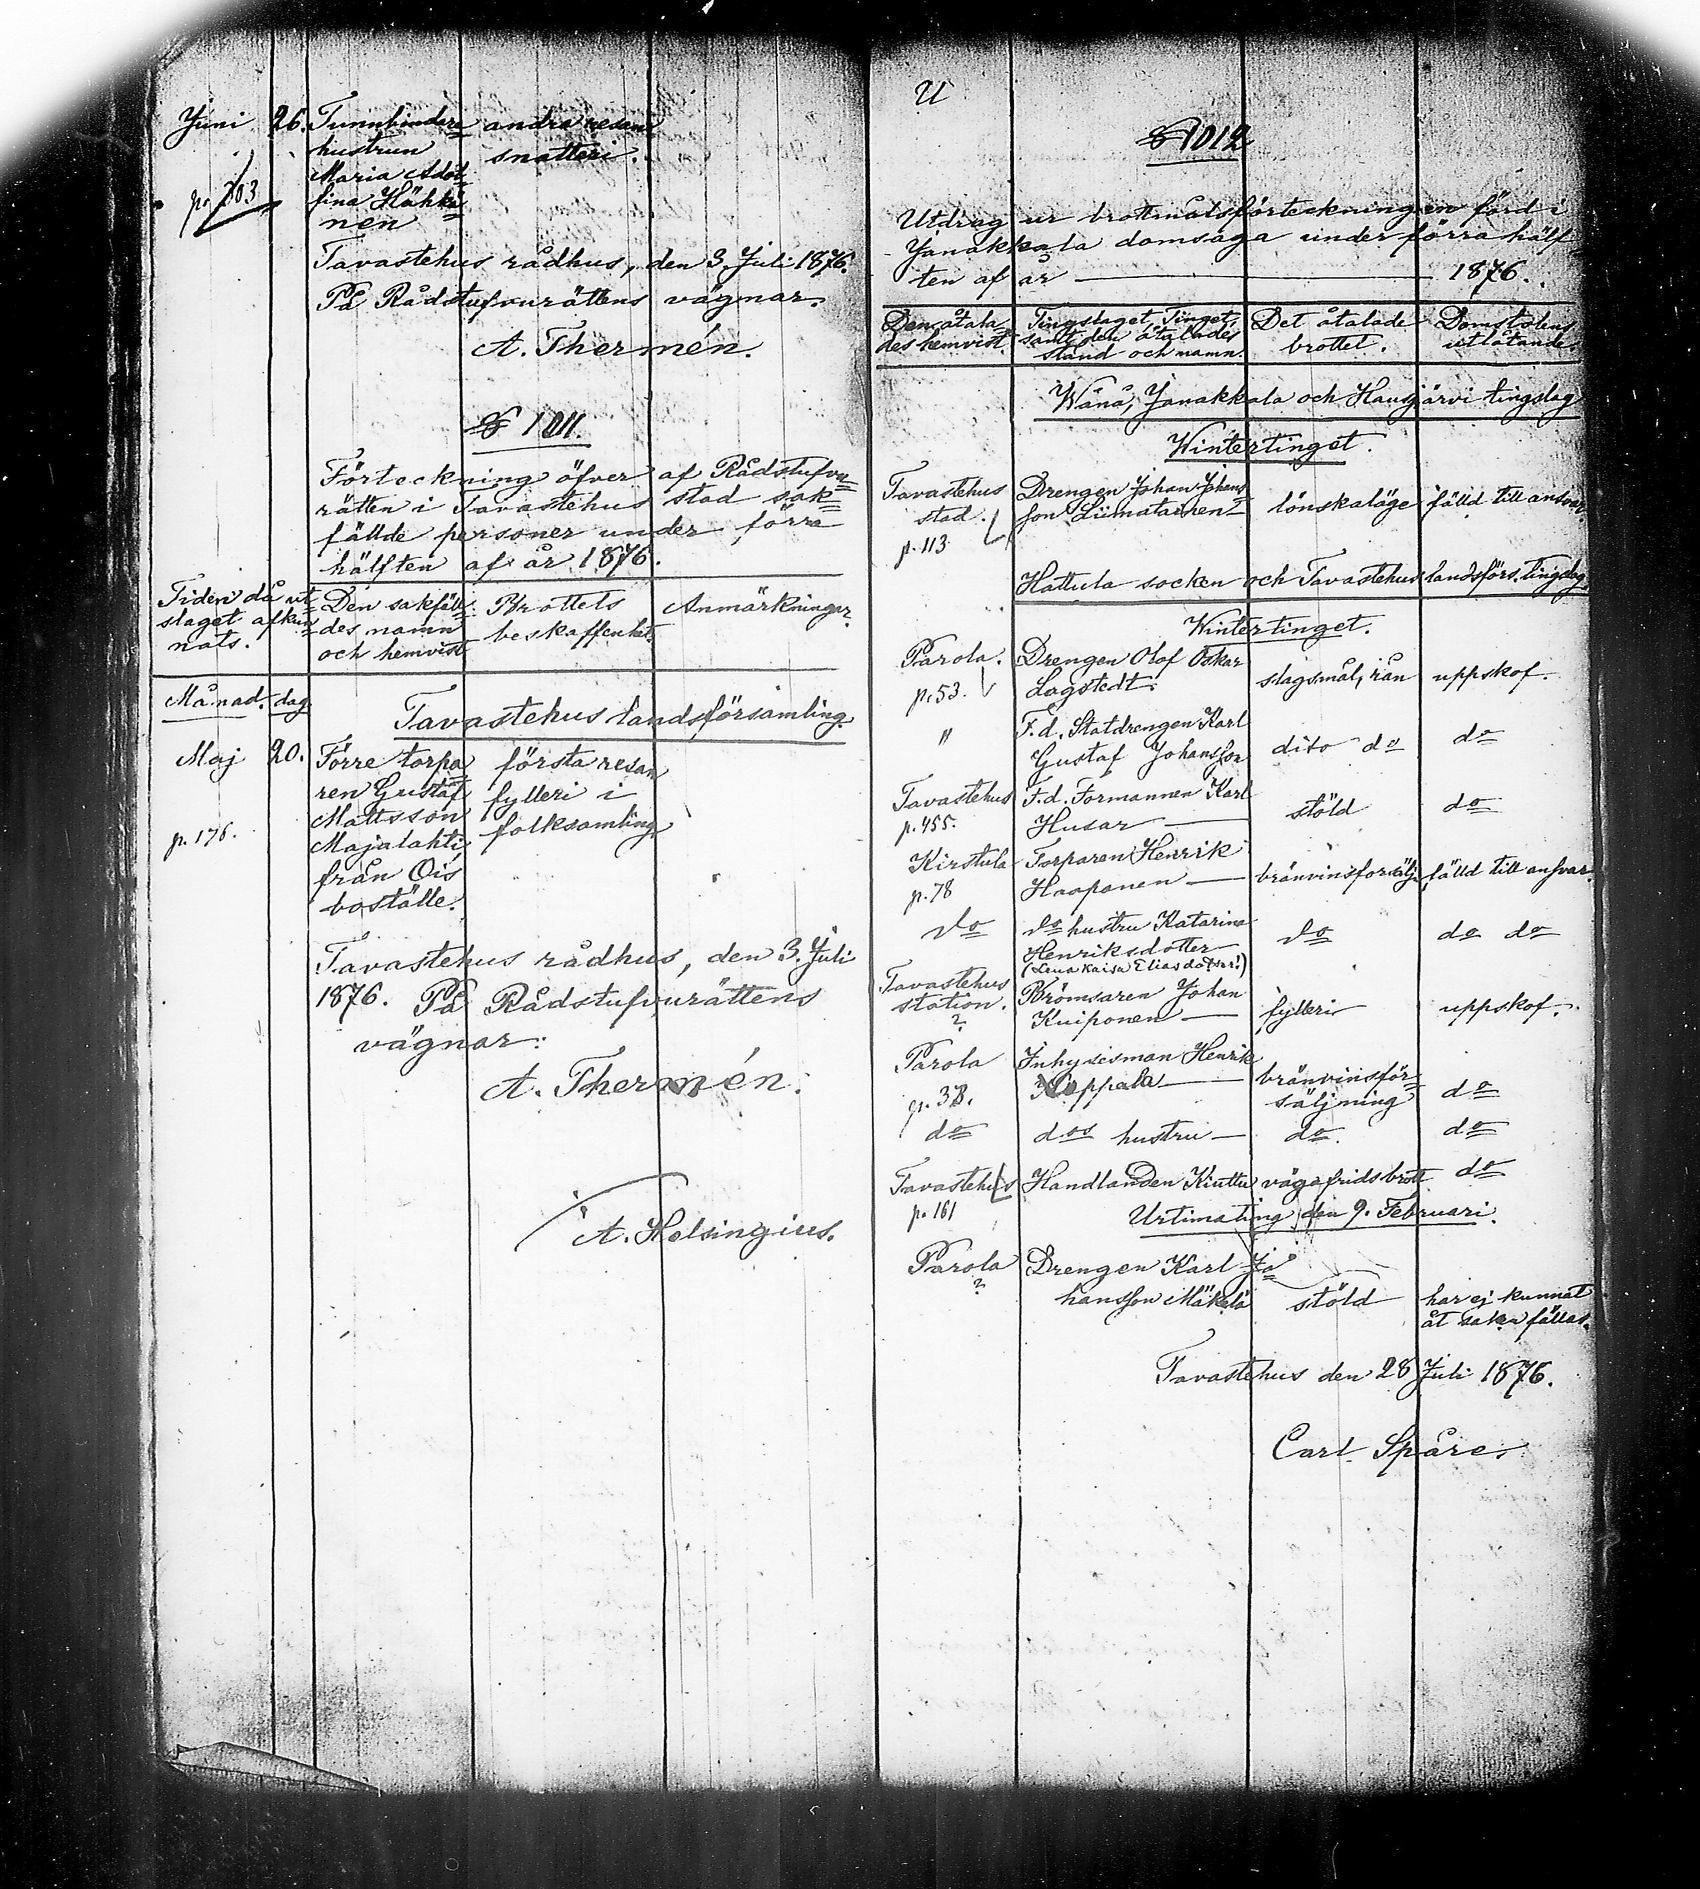 Juni 26. Tunnbindare= andra resan
hustrun snatteri.
Maria Adol=
p. 203 fina Hähkä=
nen
Tavastehus rådhus, den 3 Juli 1876.
På Rådstufvurättens vägnar:
A. Thermén.
§ 1011.
Förteckning öfver af Rådstufvu=
rätten i Tavastehus stad sak=
fällde personer under förra
hälften af år 1876.
Tiden då ut= Den sakfäll= Brottets Anmärkningar.
slaget afkun= des namn beskaffenhet.
nats. och hemvist
Månad. dag
Tavastehus landsförsamling.
Maj 20. Förre torpa= första resan
ren Gustaf fylleri i
Mattsson folksamling
p. 176. Majalahti
från Ois
boställe.
Tavastehus rådhus, den 3. Juli
1876. På Rådstufvurättens
vägnar:
A. Thermén.
A. Helsingius.
U
§ 1012
Utdrag ur brottmålsförteckningen förd i
Janakkala domsaga under förra hälf
ten af år — 1876.
Den åtala= Tingslaget, Tinget, Det åtalade Domstolens
des hemvist. samt den åtalades brottet. utlåtande.
stånd och namn.
Wånå, Janakkala och Hausjärvi tingslag
Wintertinget.
Tavastehus Drengen Johan Johans=
stad. son Liimatainen – lönskaläge fälld till ansvar.
p. 113
Hattula socken och Tavastehus landsförs. tingslag.
Wintertinget.
Parola. Drengen Olof Oskar
p. 53. Lagstedt. slagsmål, rån uppskof.
" F.d. Statdrengen Karl
Gustaf Johansson dito do do
Tavastehus F.d. Formannen Karl
p. 455. Husar — stöld do
Kirstula Torparen Henrik
p. 78 Haaponen — bränvinsförsälj. fälld till ansvar.
do do hustru Katarina
Henriksdotter — do do do
(Lena Kaisa Eliasdotter!)
Tavastehus Brömsaren Johan
station. Kuiponen — fylleri uppskof.
?
Parola Inhysisman Henrik
p. 38. Koppala — bränvinsför=
säljning do
do dos hustru — do. do
Tavastehus Handlanden Kiuttu vägafridsbrott do
p. 161
Urtimating den 9. Februari.
Parola Drengen Karl Jo=
? hansson Mäkelä stöld har ej kunnat
åt saken fällas.
Tavastehus den 28 Juli 1876.
Carl Spåre.